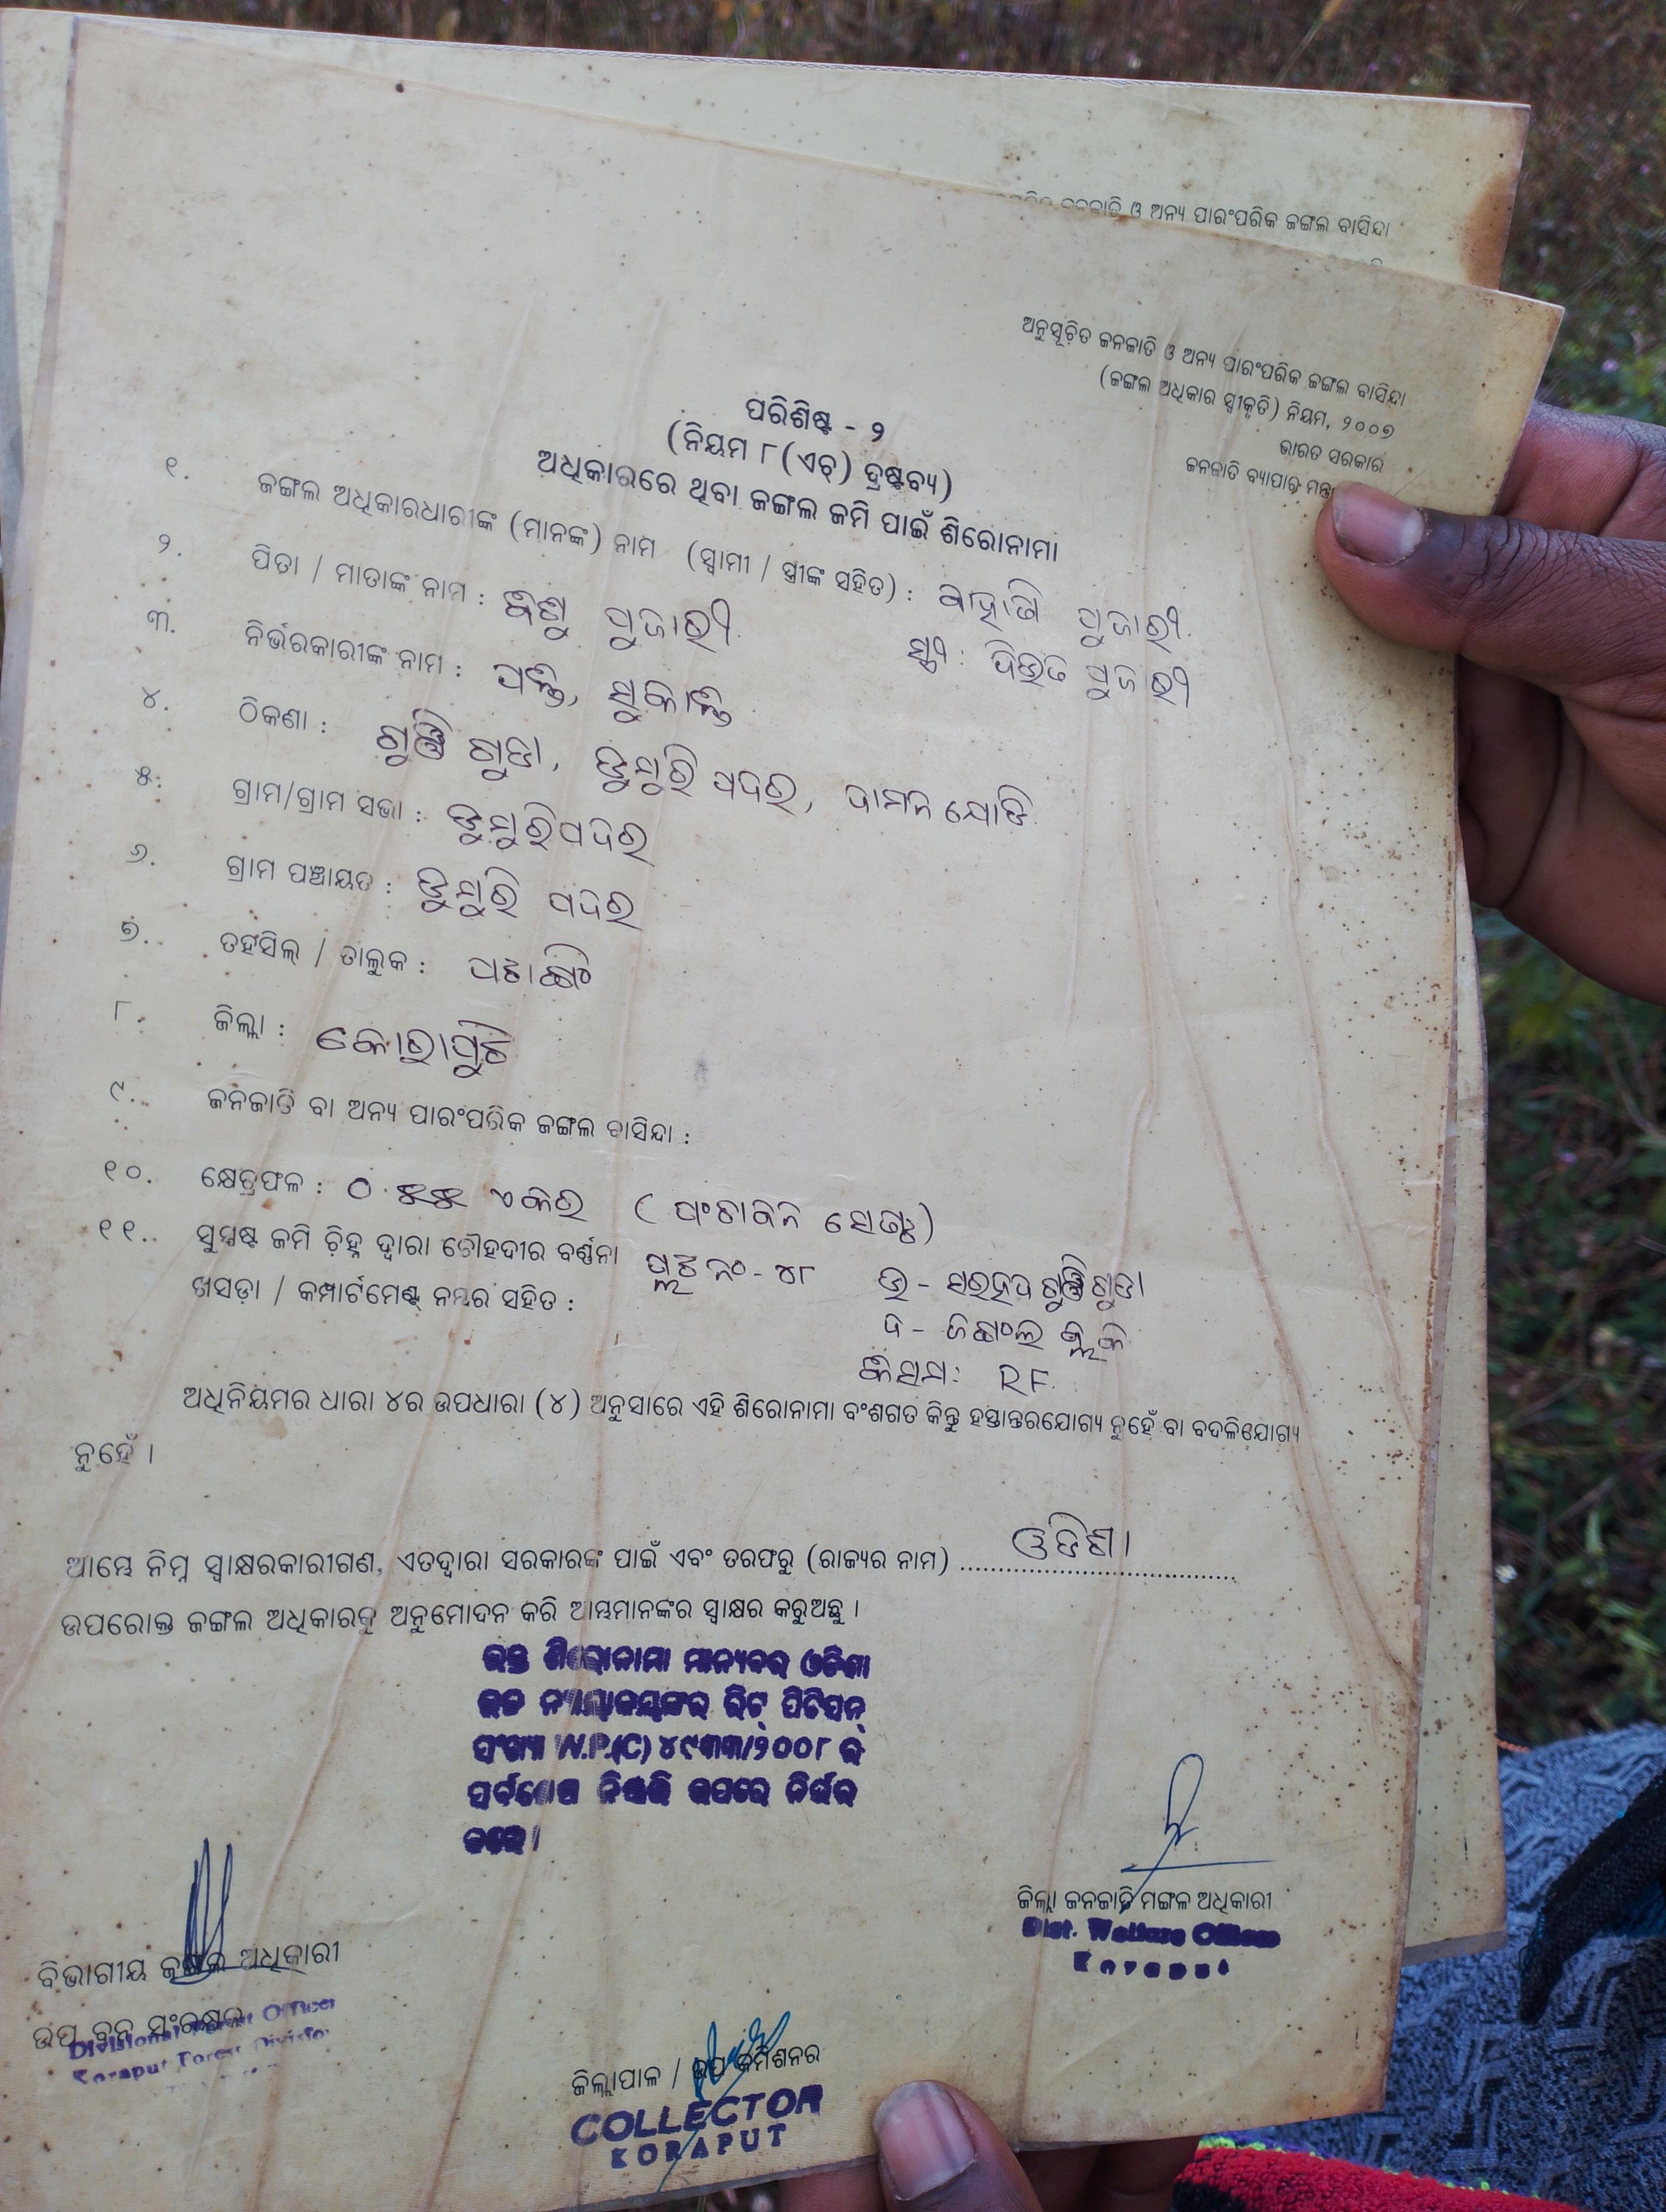 ଅନ୍ୟ ପାରଂପରିକ ଜଙ୍ଗଲ ବାସିନ୍ଦା
ଅନୁସୂଚିତ ଜନଜାତି ଓ ଅନ୍ୟ ପାରଂପରିକ ଜଙ୍ଗଲ ବାସିନ୍ଦା
(ଜଙ୍ଗଲ ଅଧିକାର ସ୍ୱୀକୃତି) ନିୟମ, ୨୦୦୭
ଭାରତ ସରକାର
ଜନଜାତି ବ୍ୟାପାର
ପରିଶିଷ୍ଟ - ୨
(ନିୟମ ୮(ଏଚ୍) ଦ୍ରଷ୍ଟବ୍ୟ)
ଅଧିକାରରେ ଥିବା ଜଙ୍ଗଲ ଜମି ପାଇଁ ଶିରୋନାମା
୧. ଜଙ୍ଗଲ ଅଧିକାରଧାରୀଙ୍କ (ମାନଙ୍କ) ନାମ (ସ୍ୱାମୀ / ସ୍ତ୍ରୀଙ୍କ ସହିତ) : ପୁଜାରୀ
ସ୍ତ୍ରୀ : ପୁଜାରୀ
୨. ପିତା / ମାତାଙ୍କ ନାମ : ପୁଜାରୀ
୩. ନିର୍ଭରକାରୀଙ୍କ ନାମ : ସୁକାନ୍ତି
୪. ଠିକଣା : ଗୁଡା, ଡୁମୁରି ପଦର, ଦାମନ ଯୋଡି
୫. ଗ୍ରାମ/ଗ୍ରାମ ସଭା : ଡୁମୁରିପଦର
୬. ଗ୍ରାମ ପଞ୍ଚାୟତ : ଡୁମୁରି ପଦର
୭. ତହସିଲ୍ / ତାଲୁକ :
୮. ଜିଲ୍ଲା : କୋରାପୁଟ
୯. ଜନଜାତି ବା ଅନ୍ୟ ପାରଂପରିକ ଜଙ୍ଗଲ ବାସିନ୍ଦା :
୧୦. କ୍ଷେତ୍ରଫଳ : ୦.୫୫ ଏକର
୧୧. ସୁସ୍ପଷ୍ଟ ଜମି ଚିହ୍ନ ଦ୍ୱାରା ଚୌହଦୀର ବର୍ଣ୍ଣନା ପ୍ଲଟ ନଂ - ୪୮ ଉ -
ଖସଡ଼ା / କମ୍ପାର୍ଟମେଣ୍ଟ୍ ନମ୍ବର ସହିତ : ଦ - ଜଙ୍ଗଲ
କିସମ : RF
ଅଧିନିୟମର ଧାରା ୪ର ଉପଧାରା (୪) ଅନୁସାରେ ଏହି ଶିରୋନାମା ବଂଶଗତ କିନ୍ତୁ ହସ୍ତାନ୍ତରଯୋଗ୍ୟ ନୁହେଁ ବା ବଦଳିଯୋଗ୍ୟ
ନୁହେଁ ।
ଆମ୍ଭେ ନିମ୍ନ ସ୍ୱାକ୍ଷରକାରୀଗଣ, ଏତଦ୍ୱାରା ସରକାରଙ୍କ ପାଇଁ ଏବଂ ତରଫରୁ (ରାଜ୍ୟର ନାମ) ଓଡିଶା
ଉପରୋକ୍ତ ଜଙ୍ଗଲ ଅଧିକାରକୁ ଅନୁମୋଦନ କରି ଆମ୍ଭମାନଙ୍କର ସ୍ୱାକ୍ଷର କରୁଅଛୁ ।
ଉକ୍ତ ଶିରୋନାମା ମାନ୍ୟବର ଓଡିଶା
ଉଚ୍ଚ ନ୍ୟାୟାଳୟଙ୍କର ରିଟ୍ ପିଟିସନ୍
ସଂଖ୍ୟା W.P.(C) ୪୯୩୩/୨୦୦୮ ର
ସର୍ବଶେଷ ନିଷ୍ପତ୍ତି ଉପରେ ନିର୍ଭର
କରେ ।
ଜିଲ୍ଲା ଜନଜାତି ମଙ୍ଗଳ ଅଧିକାରୀ
Dist. Welfare Officer
Koraput
ବିଭାଗୀୟ ଜଙ୍ଗଲ ଅଧିକାରୀ
ଉପ ବନ ସଂରକ୍ଷକ
Divisional Forest Officer
Koraput Forest Division
ଜିଲ୍ଲାପାଳ / ଉପ କମିଶନର
COLLECTOR
KORAPUT